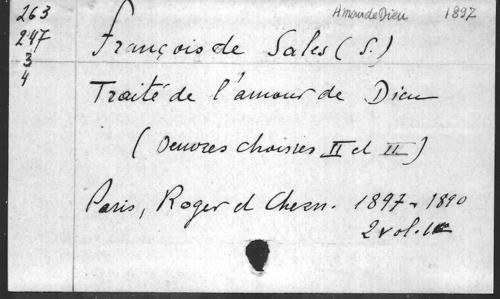 263
247
3
4
Amour de Dieu 1897
François de Sales (S.)
Traité de l'amour de Dieu
(Oeuvres choisies II et III)
Paris, Roger et Chern. 1897-1890
2 vol.